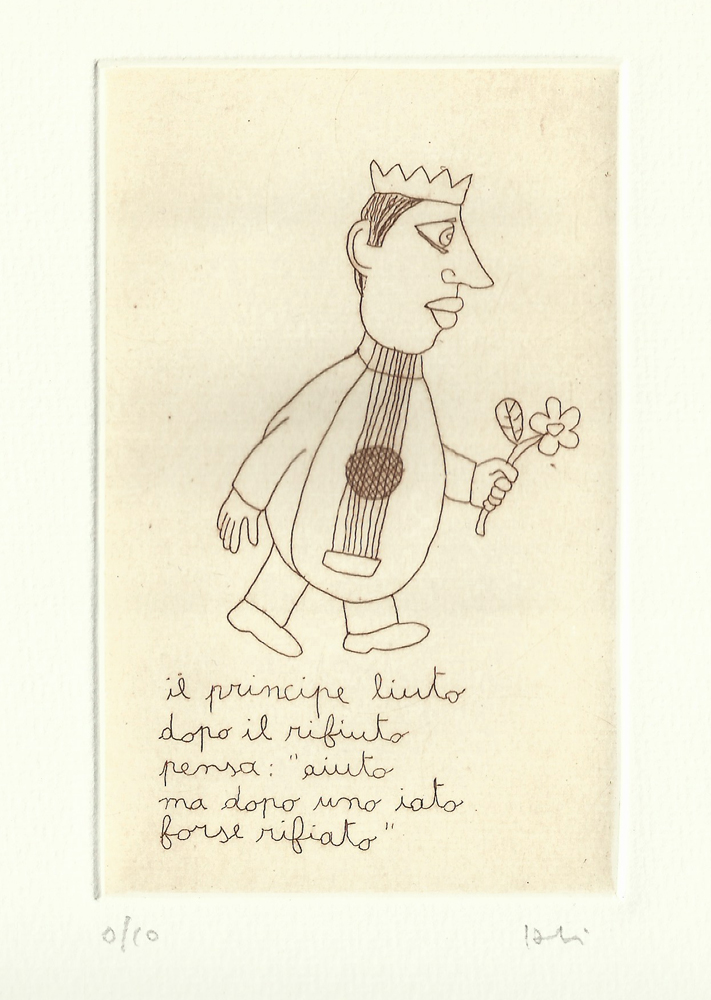 il principe liuto
dopo il rifiuto
pensa: "aiuto
ma dopo uno iato
forse rifiato"
0/10